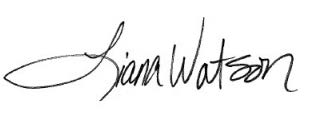 Liana Watson